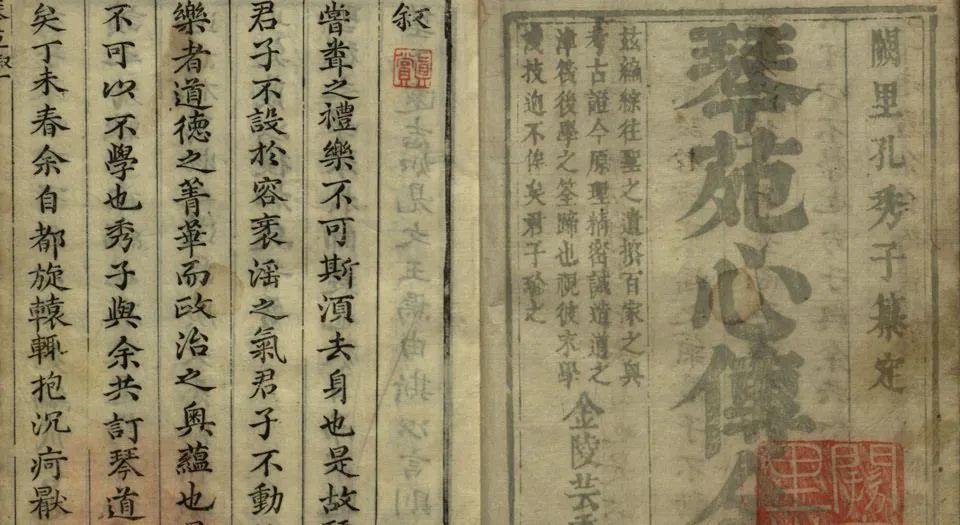 闕里孔秀子纂定
琴苑心傳全
茲編綜往聖之遺百家之奧
考古證今原理精密誠造道之
津筏後學之筌蹄也視彼末學
淺技迥不侔矣君子珍之
金陵芸
闕里
叙
真賞
嘗之禮樂不可斯湏去身也是故
君子不設於容衺滛之氣君子不動
樂者道德之菁華而政治之奧蘊也
不可以不學也秀子與余共訂琴道
矣丁未春余自都旋轅輒抱沉疴厭